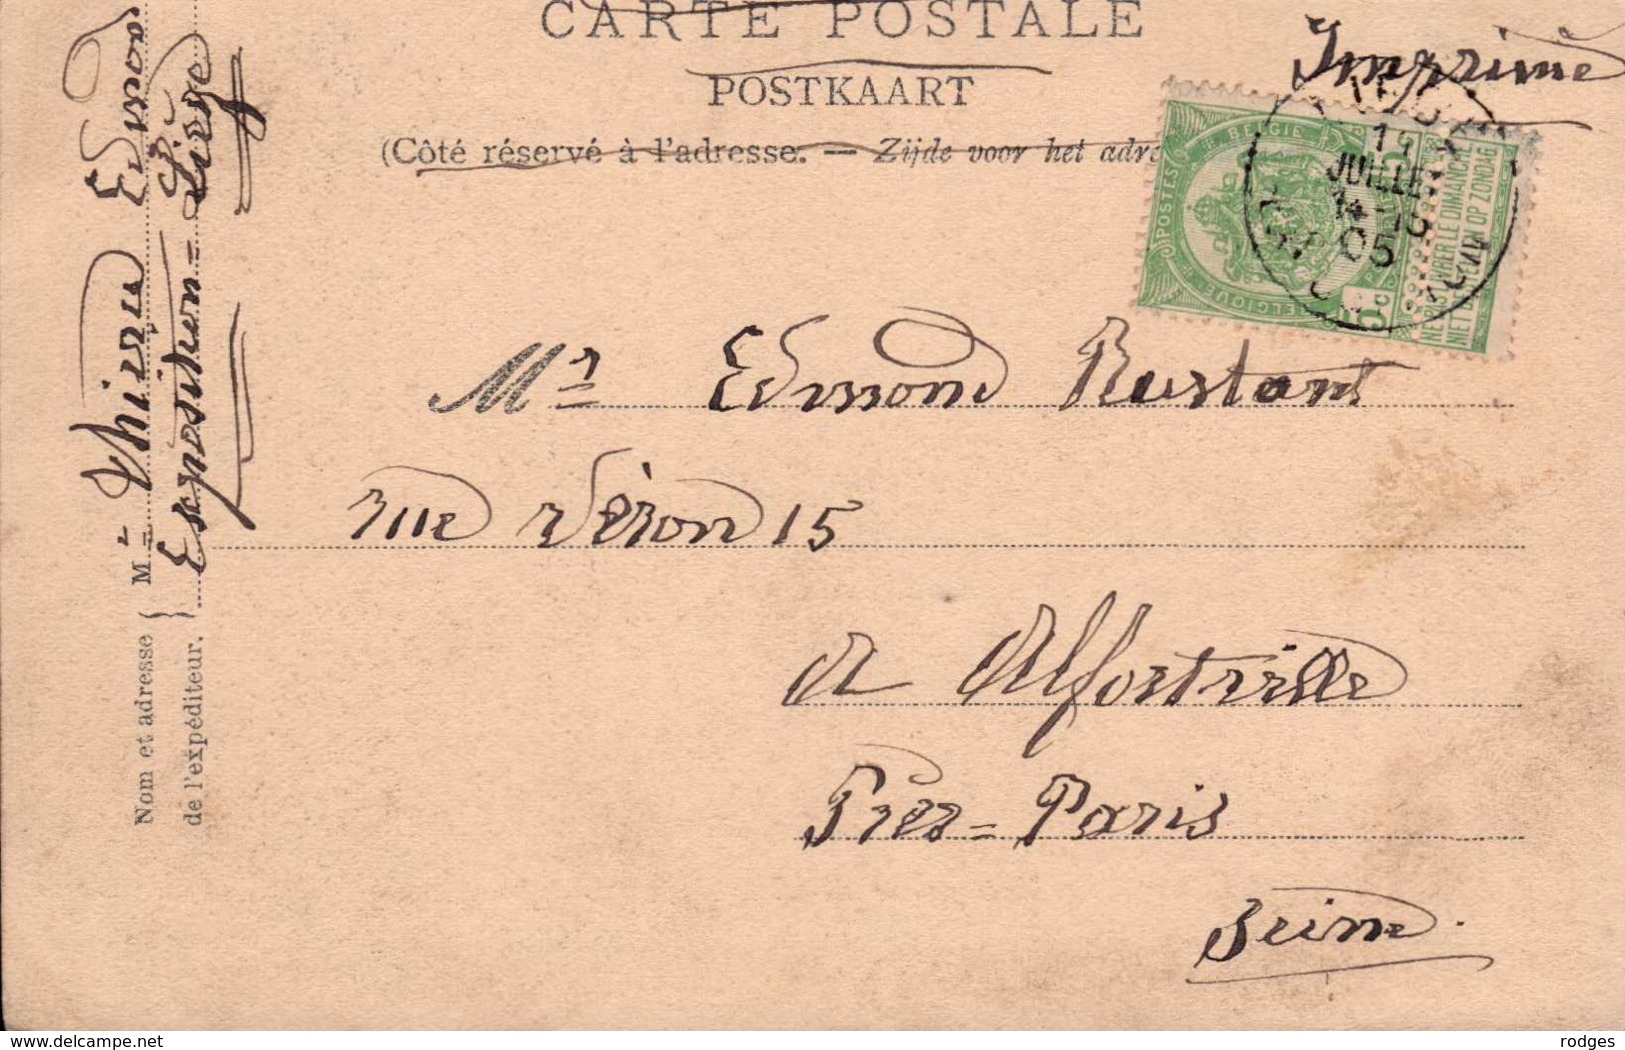 CARTE POSTALE
Imprimé
POSTKAART
(Côté réservé à l'adresse. — Zijde voor het adre
BELGIE
POSTES
BELGIQUE
NE PAS LIVRER LE DIMANCHE
NIET BESTELLEN OP ZONDAG
19
JUILLET
14-15
05
Mr Edmond Rustant
rue Véron 15
a Alfortville
Pres=Paris
Seine.
Nom et adresse
de l'expéditeur.
M.
Thierry Edmond
Exposition=Liége
www.delcampe.net
rodges